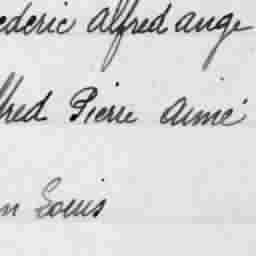 ederic Alfred Ange
lfred Pierre Aimé
n Louis